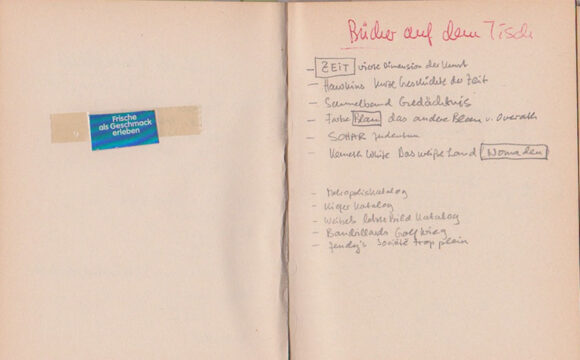 Frische
als Geschmack
erleben
Bücher auf dem Tisch
- ZEIT vierte Dimension der Kunst
- Hawkins Kurze Geschichte der Zeit
- Sammelband Gedächtnis
- Farbe Blau das andere Blau v. Overath
- SOHAR Judentum
- Kenneth White Das weiße Land Nomaden
- Metropolis Katalog
- Kiger Katalog
- Weibels Bild Katalog
- Baudrillards Golfkrieg
- Société trop plein